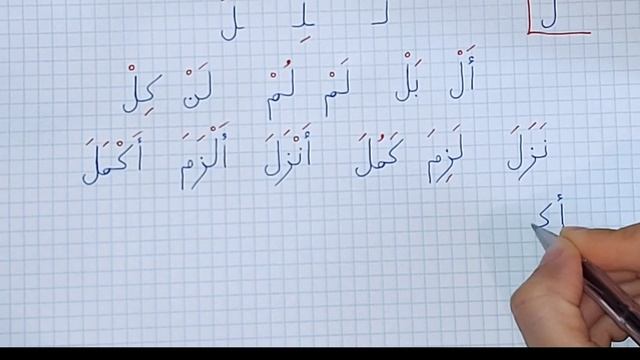 ل
أَلْ بَلْ لَمْ لُمْ لَنْ كِلْ
نَزَلَ لَزِمَ كَمُلَ أَنْزَلَ أَلْزَمَ أَكْمَلَ
أكـ